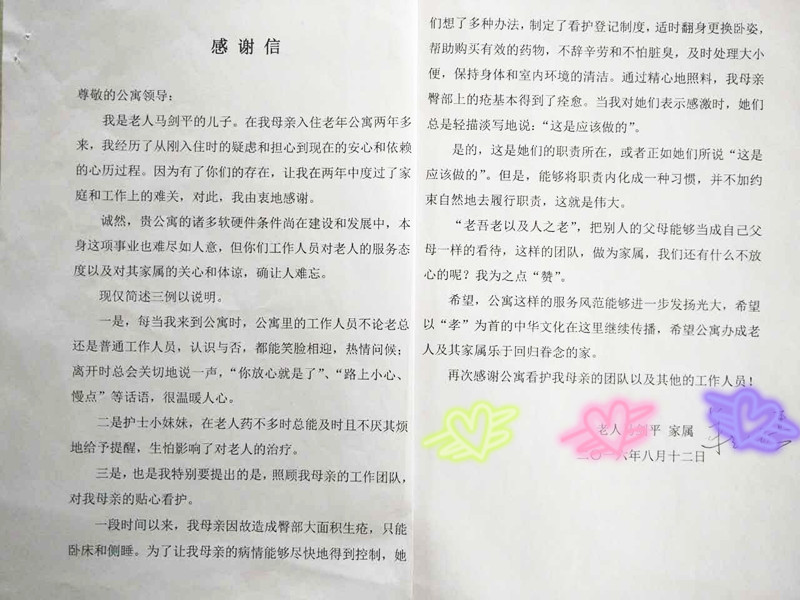 感谢信
尊敬的公寓领导：
我是老人马剑平的儿子。在我母亲入住老年公寓两年多
来，我经历了从刚入住时的疑虑和担心到现在的安心和依赖
的心历过程。因为有了你们的存在，让我在两年中度过了家
庭和工作上的难关，对此，我由衷地感谢。
诚然，贵公寓的诸多软硬件条件尚在建设和发展中，本
身这项事业也难尽如人意，但你们工作人员对老人的服务态
度以及对其家属的关心和体谅，确让人难忘。
现仅简述三例以说明。
一是，每当我来到公寓时，公寓里的工作人员不论老总
还是普通工作人员，认识与否，都能笑脸相迎，热情问候；
离开时总会关切地说一声，“你放心就是了”、“路上小心、
慢点”等话语，很温暖人心。
二是护士小妹妹，在老人药不多时总能及时且不厌其烦
地给予提醒，生怕影响了对老人的治疗。
三是，也是我特别要提出的是，照顾我母亲的工作团队，
对我母亲的贴心看护。
一段时间以来，我母亲因故造成臀部大面积生疮，只能
卧床和侧睡。为了让我母亲的病情能够尽快地得到控制，她
们想了多种办法，制定了看护登记制度，适时翻身更换卧姿，
帮助购买有效的药物，不辞辛劳和不怕脏臭，及时处理大小
便，保持身体和室内环境的清洁。通过精心地照料，我母亲
臀部上的疮基本得到了痊愈。当我对她们表示感激时，她们
总是轻描淡写地说：“这是应该做的”。
是的，这是她们的职责所在，或者正如她们所说“这是
应该做的”。但是，能够将职责内化成一种习惯，并不加约
束自然地去履行职责，这就是伟大。
“老吾老以及人之老”，把别人的父母能够当成自己父
母一样的看待，这样的团队，做为家属，我们还有什么不放
心的呢？我为之点“赞”。
希望，公寓这样的服务风范能够进一步发扬光大，希望
以“孝”为首的中华文化在这里继续传播，希望公寓办成老
人及其家属乐于回归眷念的家。
再次感谢公寓看护我母亲的团队以及其他的工作人员！
老人马剑平 家属
二〇一六年八月十二日